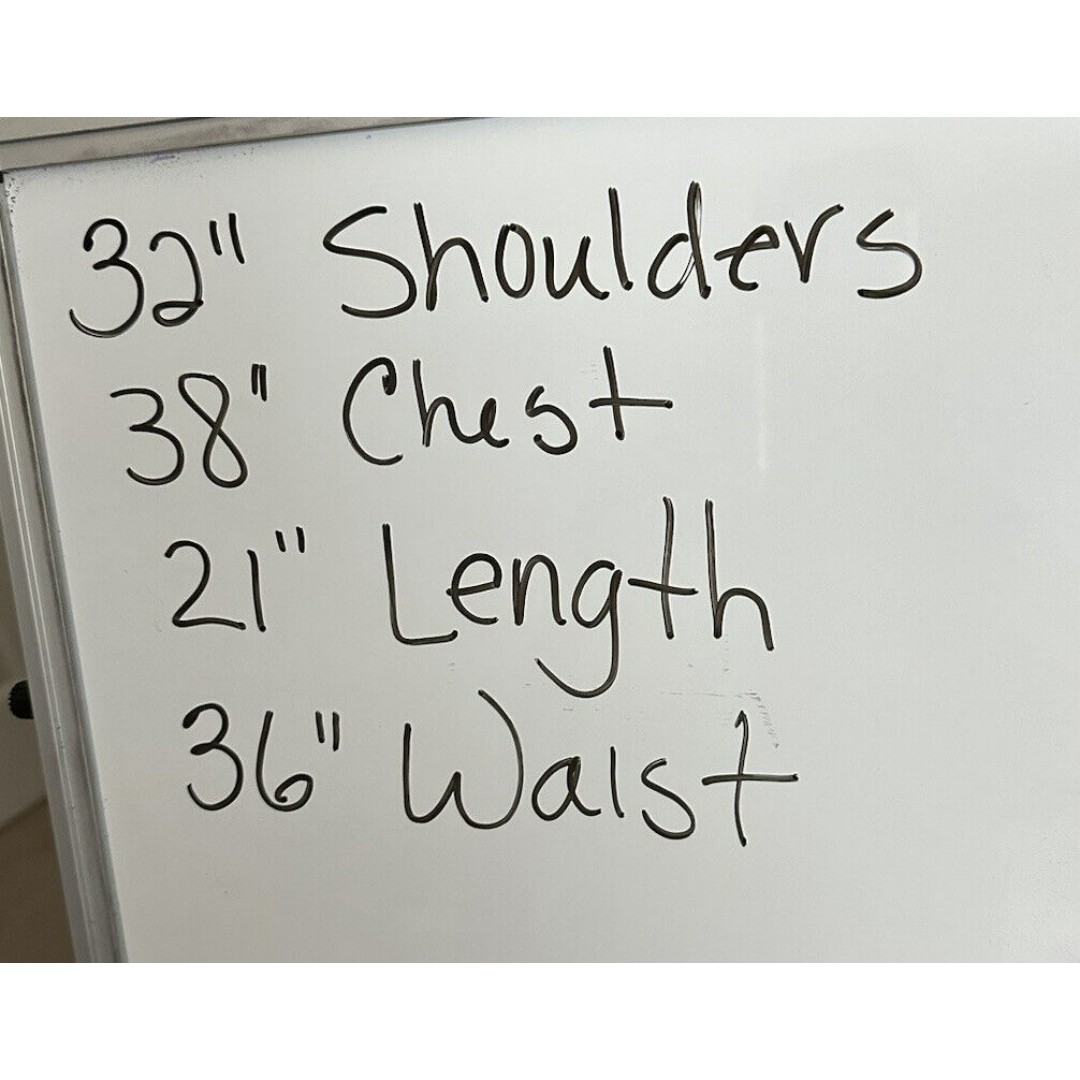 32" Shoulders
38" Chest
21" Length
36" Waist